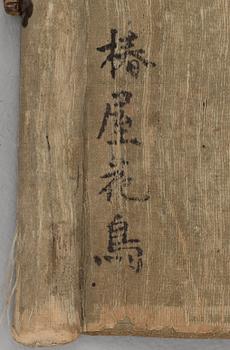 椿屋花鳥